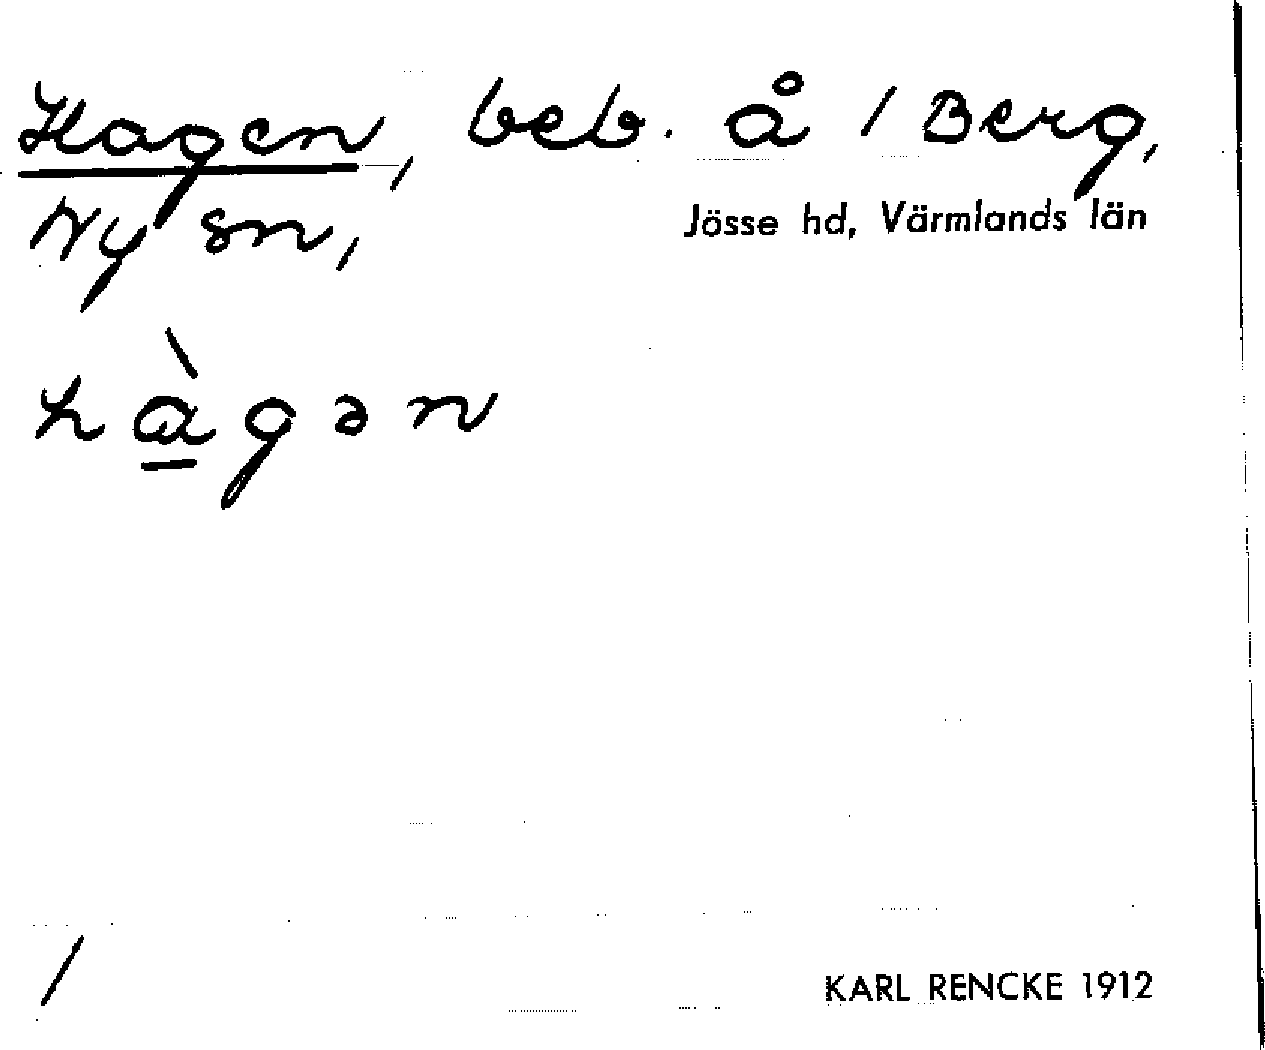 Hagen, beb. å 1 Berg,
Ny sn,
Jösse hd, Värmlands län
hàgən
/
KARL RENCKE 1912